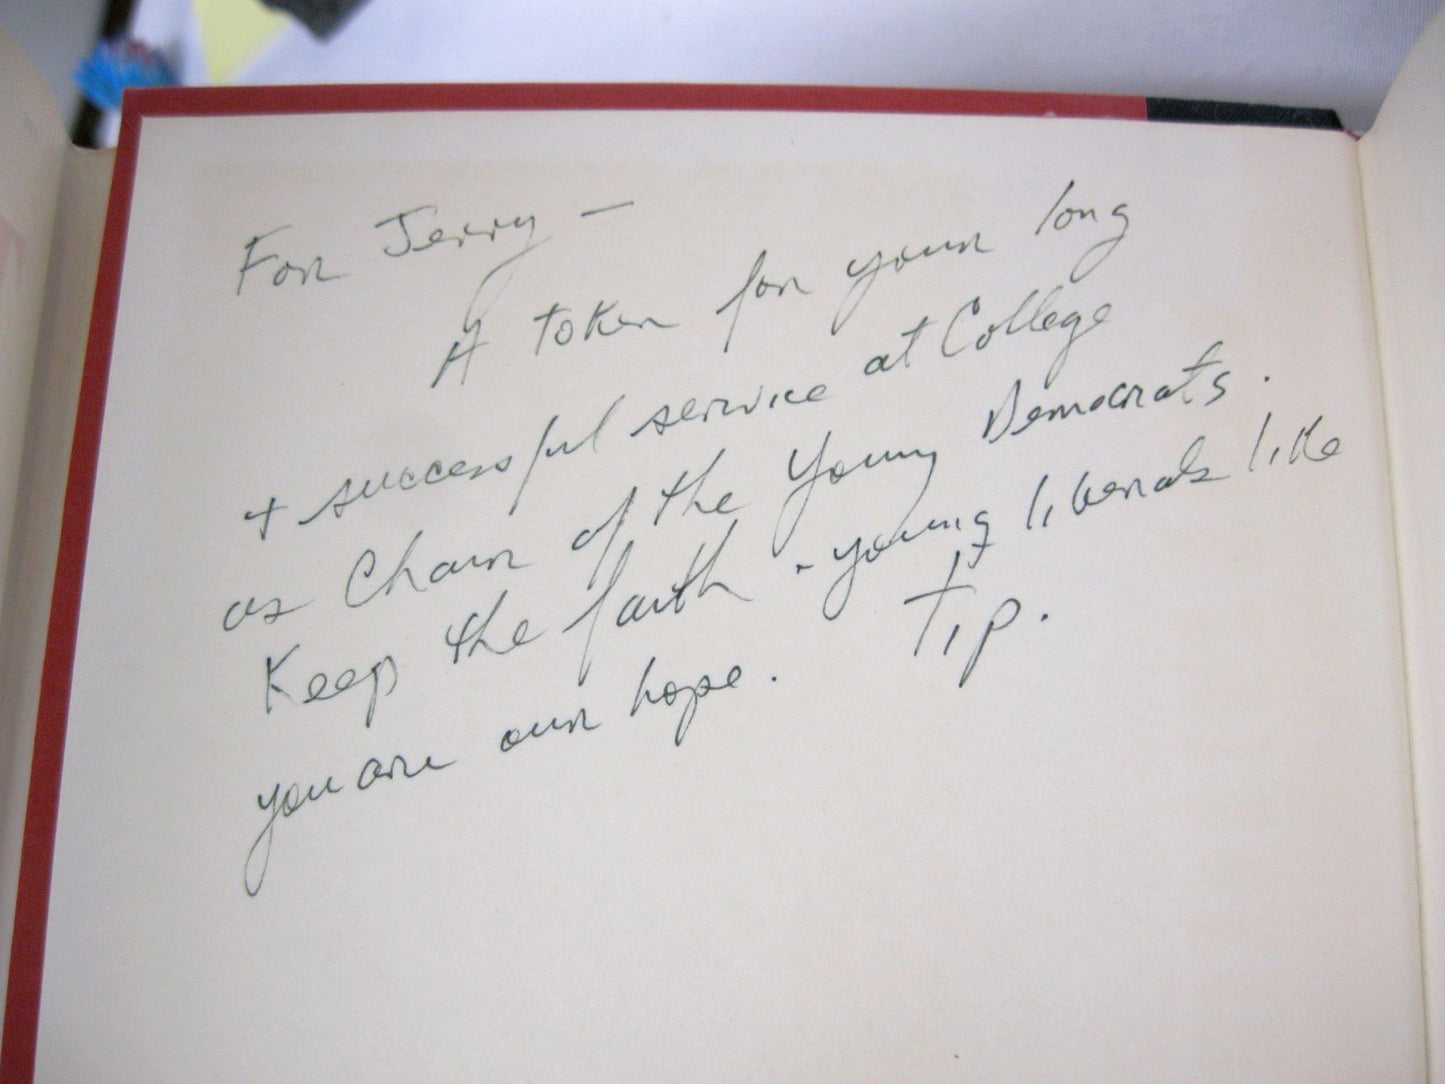 For Jerry —
A token for your long
+ successful service at College
as Chair of the Young Democrats.
Keep the faith - young liberals like
you are our hope.
Tip.